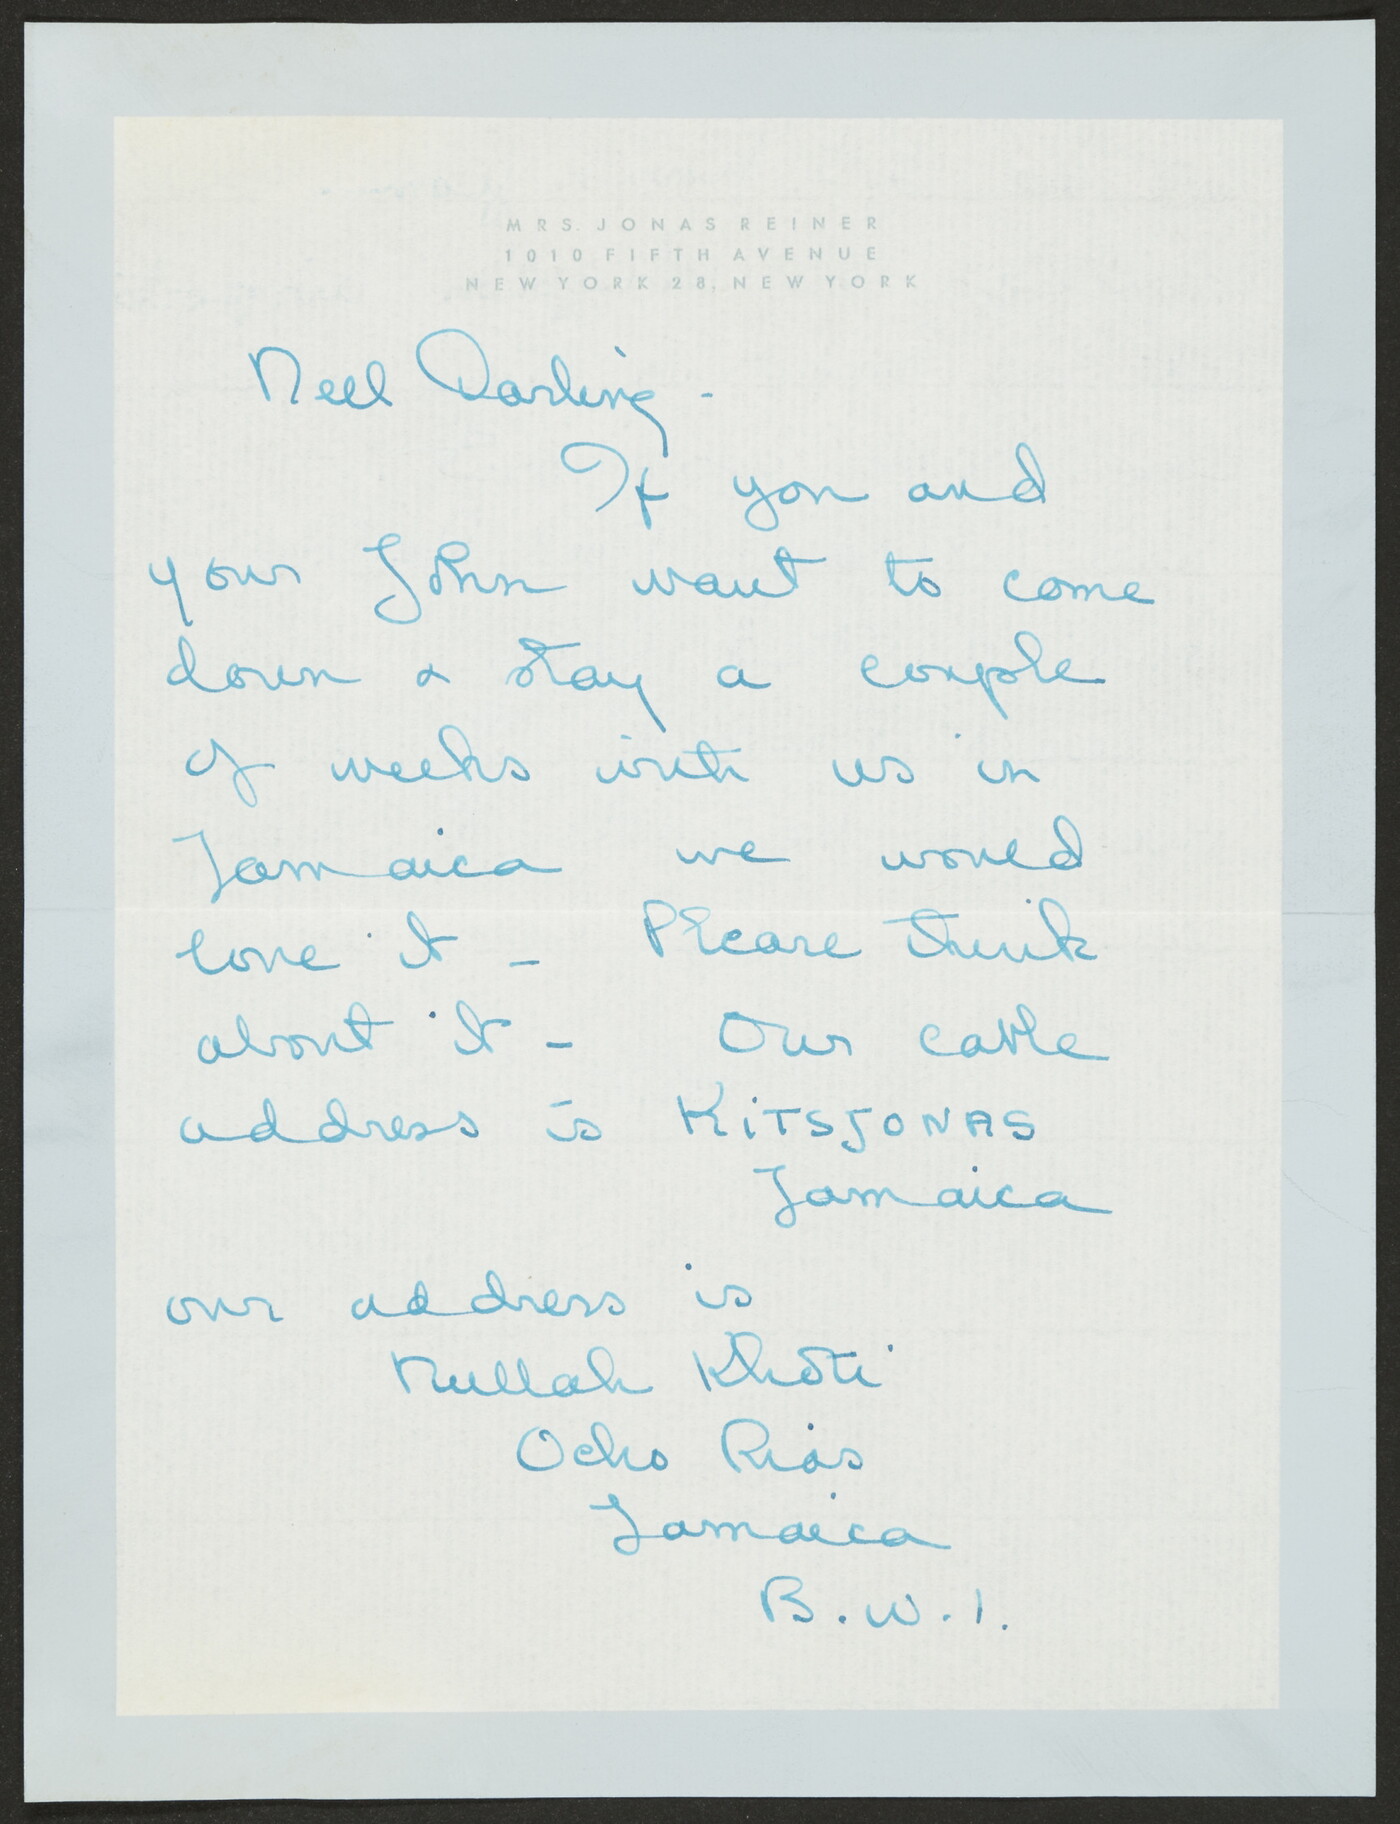 MRS. JONAS REINER
1010 FIFTH AVENUE
NEW YORK 28, NEW YORK
Neel Darling -
If you and
your John want to come
down & stay a couple
of weeks with us in
Jamaica we would
love it - Please think
about it - Our cable
address is KiTSJONAS
Jamaica
our address is
Nullah Khoti
Ocho Rios
Jamaica
B.W.I.